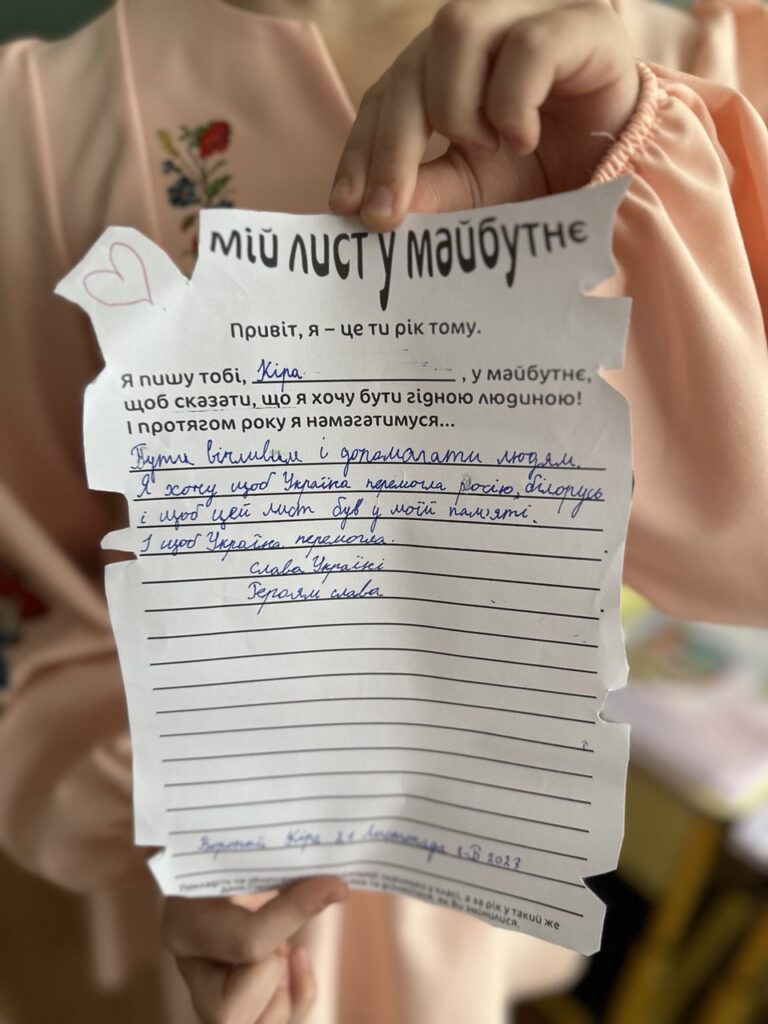 мій лист у майбутнє
Привіт, я – це ти рік тому.
Я пишу тобі, Кіра, у майбутнє,
щоб сказати, що я хочу бути гідною людиною!
І протягом року я намагатимуся...
Бути вічливим і допомагати людям.
Я хочу щоб Україна перемогла росію, білорусь
і щоб цей лист був у моїй пам'яті.
І щоб Україна перемогла.
Слава Україні
Героям слава
Кіра 21 Листопада 2-Б 2023
у класі, а за рік у такий же
як ви змінилися.